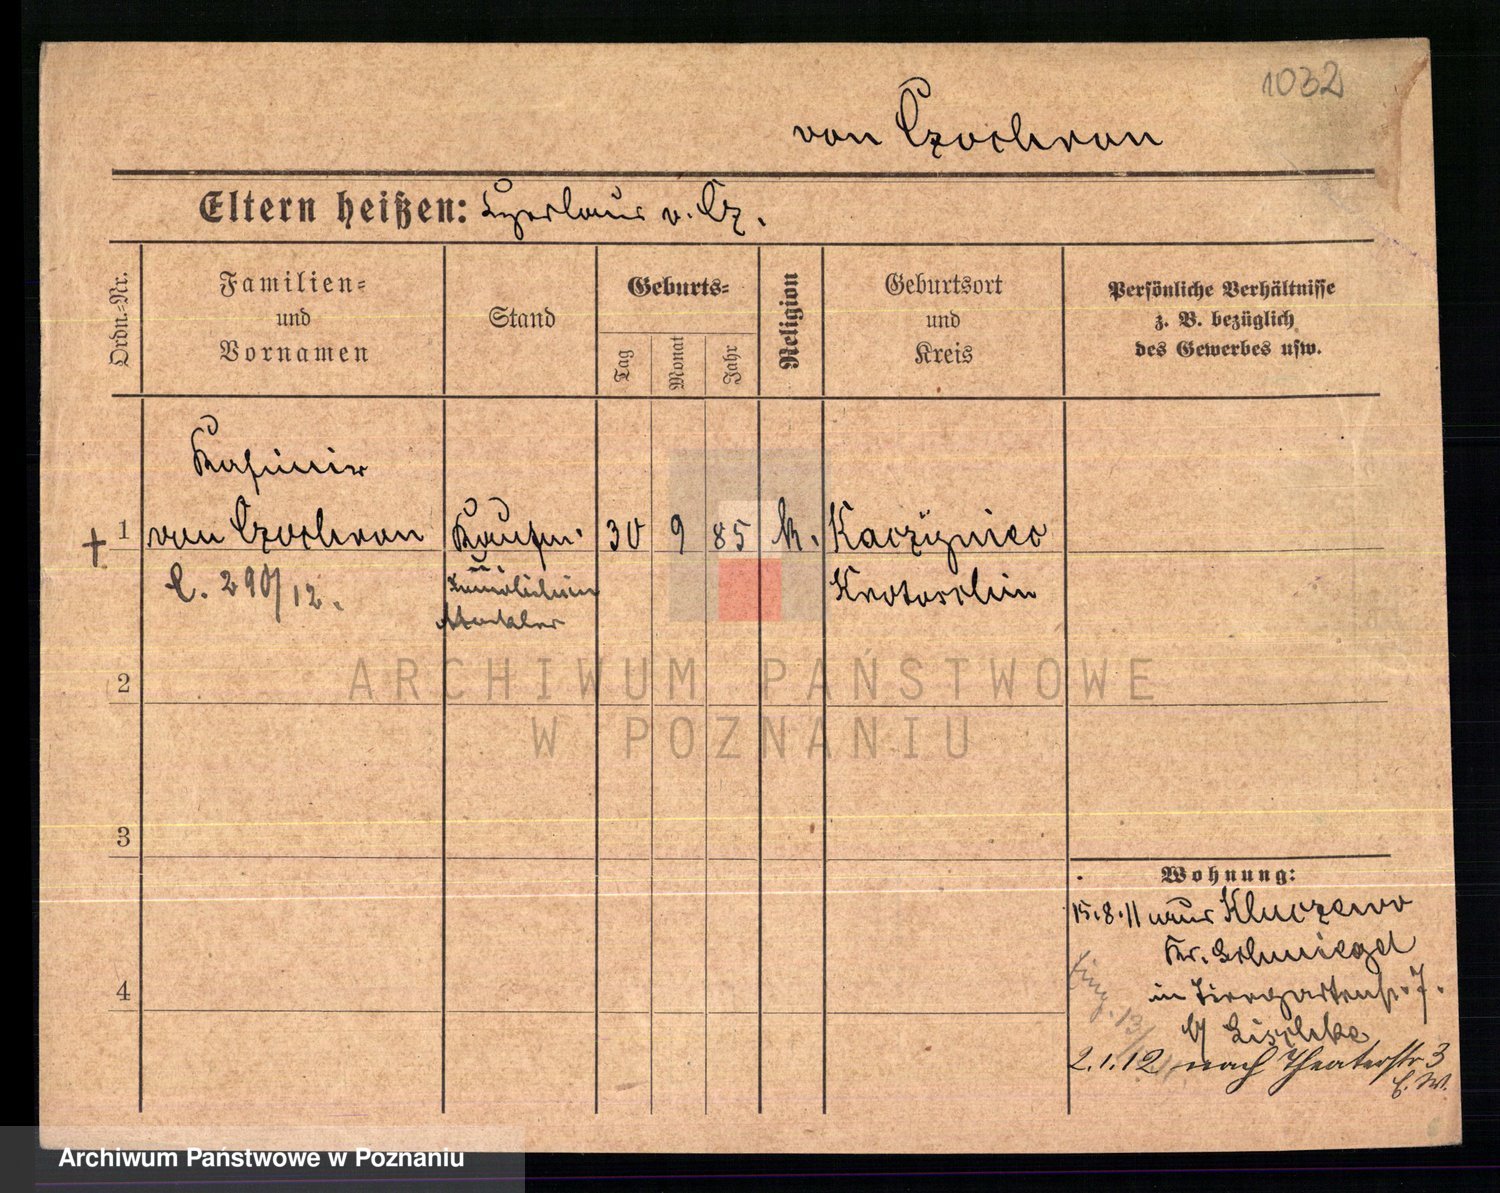 1032
von Czochron
Eltern heißen: v. Cz.
Ordn.=Nr.
Familien=
und
Vornamen
Stand
Geburts=
Tag
Monat
Jahr
Religion
Geburtsort
und
Kreis
Persönliche Verhältnisse
z. B. bezüglich
des Gewerbes usw.
Kasimir
† 1 von Czochron Kaufm. 30 9 85 k. Kaczyniec
C. 290/12. Krotoschin
Makler
2
3
4
Wohnung:
15.8.11 aus Kluczewo
Kr. Schmiegel
in Tiergartenstr. 7.
b/
2.1.12 nach Theaterstr 3
E. W.
Eing. 13/
ARCHIWUM PAŃSTWOWE
W POZNANIU
Archiwum Państwowe w Poznaniu